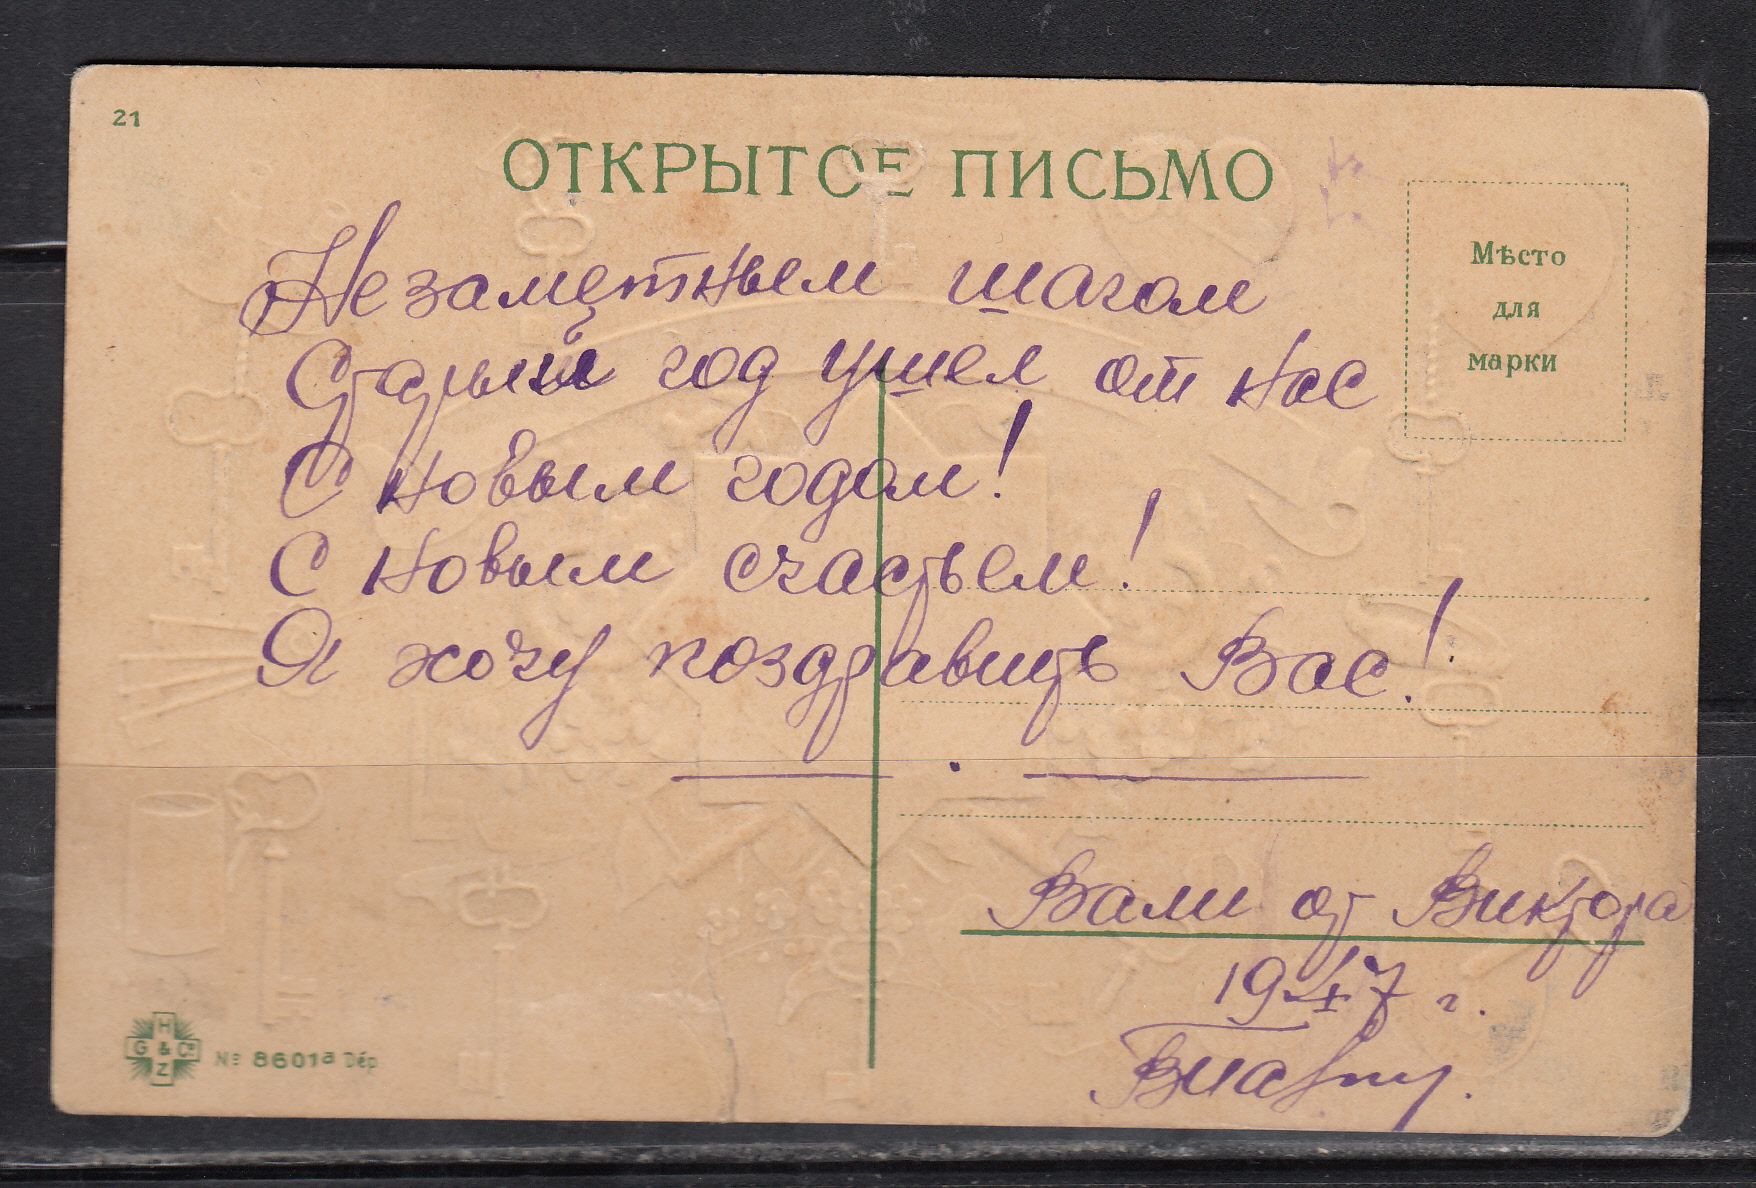 21
ОТКРЫТОЕ ПИСЬМО
Мѣсто
для
марки
Незаметным шагом
Старый год ушел от нас
С новым годом!
С новым счастьем!
Я хочу поздравить Вас!
Вали от Виктора
1947 г.
H
G & Co
Z
№ 8601a Dép